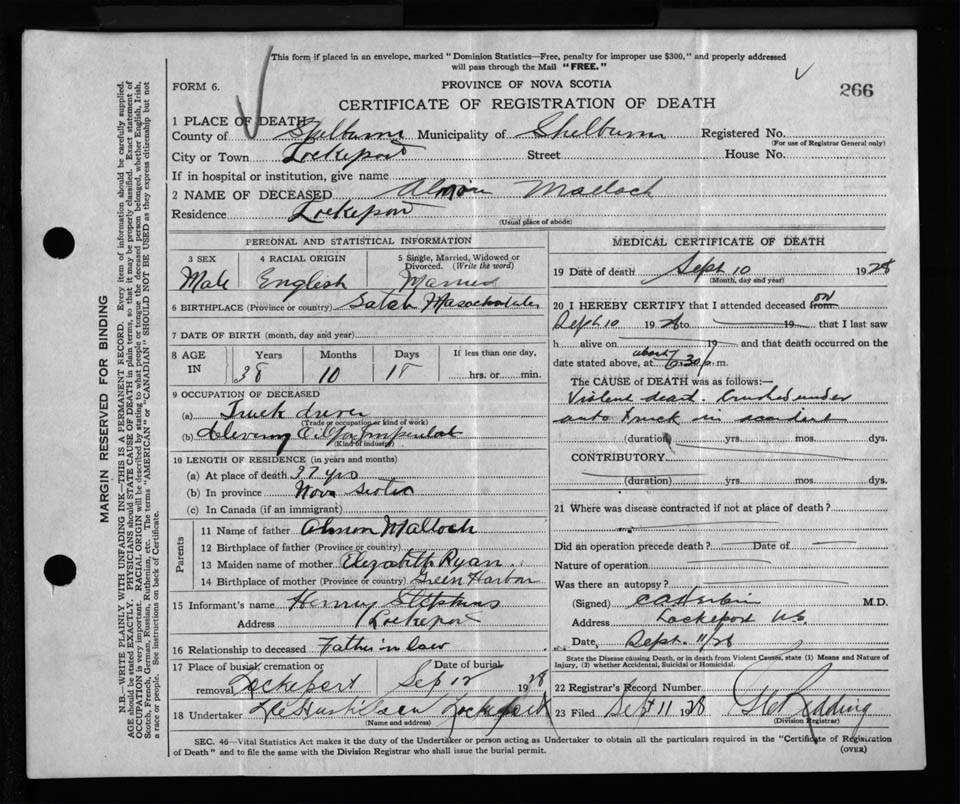 This form if placed in an envelope, marked "Dominion Statistics—Free, penalty for improper use $300," and properly addressed
will pass through the Mail "FREE."
FORM 6.
PROVINCE OF NOVA SCOTIA
266
CERTIFICATE OF REGISTRATION OF DEATH
1 PLACE OF DEATH
County of Shelburne Municipality of Shelburne Registered No.
(For use of Registrar General only)
City or Town Lockeport Street House No.
If in hospital or institution, give name
2 NAME OF DECEASED Malloch
Residence Lockeport
(Usual place of abode)
PERSONAL AND STATISTICAL INFORMATION
3 SEX 4 RACIAL ORIGIN 5 Single, Married, Widowed or
Divorced. (Write the word)
Male English Married
6 BIRTHPLACE (Province or country) Massachusetts
7 DATE OF BIRTH (month, day and year)
8 AGE IN Years Months Days If less than one day,
38 10 18 hrs. or min.
9 OCCUPATION OF DECEASED
(a) Truck driver
(Trade or occupation or kind of work)
(b) Oil for Imperial
(Kind of industry)
10 LENGTH OF RESIDENCE (in years and months)
(a) At place of death 37 yrs
(b) In province Nova Scotia
(c) In Canada (if an immigrant)
Parents
11 Name of father Almon Malloch
12 Birthplace of father (Province or country)
13 Maiden name of mother Elizabeth Ryan
14 Birthplace of mother (Province or country) Green Harbor
15 Informant's name Henry Stepkins
Address Lockeport
16 Relationship to deceased Father in law
17 Place of burial, cremation or Date of burial
removal, Lockeport Sep 12 1928
18 Undertaker Lockeport
(Name and address)
MEDICAL CERTIFICATE OF DEATH
19 Date of death Sept 10 1928
(Month, day and year)
20 I HEREBY CERTIFY that I attended deceased from on
Sept 10 1928 to 19 that I last saw
h alive on 19 and that death occurred on the
date stated above, at about 6.30 p.m.
The CAUSE of DEATH was as follows:
Violent death. Crushed under
auto truck in accident
(duration) yrs. mos. dys.
CONTRIBUTORY
(duration) yrs. mos. dys.
21 Where was disease contracted if not at place of death?
Did an operation precede death? Date of
Nature of operation
Was there an autopsy?
(Signed) M.D.
Address Lockeport N.S.
Date, Sept. 11/28
State the Disease causing Death, or in death from Violent Causes, state (1) Means and Nature of
Injury, (2) whether Accidental, Suicidal or Homicidal.
22 Registrar's Record Number
23 Filed Sept 11 1928 Redding
(Division Registrar)
SEC. 46—Vital Statistics Act makes it the duty of the Undertaker or person acting as Undertaker to obtain all the particulars required in the "Certificate of Registration
of Death" and to file the same with the Division Registrar who shall issue the burial permit.
(OVER)
MARGIN RESERVED FOR BINDING
N.B.—WRITE PLAINLY WITH UNFADING INK—THIS IS A PERMANENT RECORD. Every item of information should be carefully supplied.
AGE should be stated EXACTLY. PHYSICIANS should STATE CAUSE OF DEATH in plain terms, so that it may be properly classified. Exact statement of
OCCUPATION is very important. RACIAL ORIGIN will be described by stating to what people or tongue the deceased person belonged, whether English, Irish,
Scotch, French, German, Russian, Ruthenian, etc. The terms "AMERICAN" or "CANADIAN" SHOULD NOT BE USED as they express citizenship but not
a race or people. See instructions on back of Certificate.